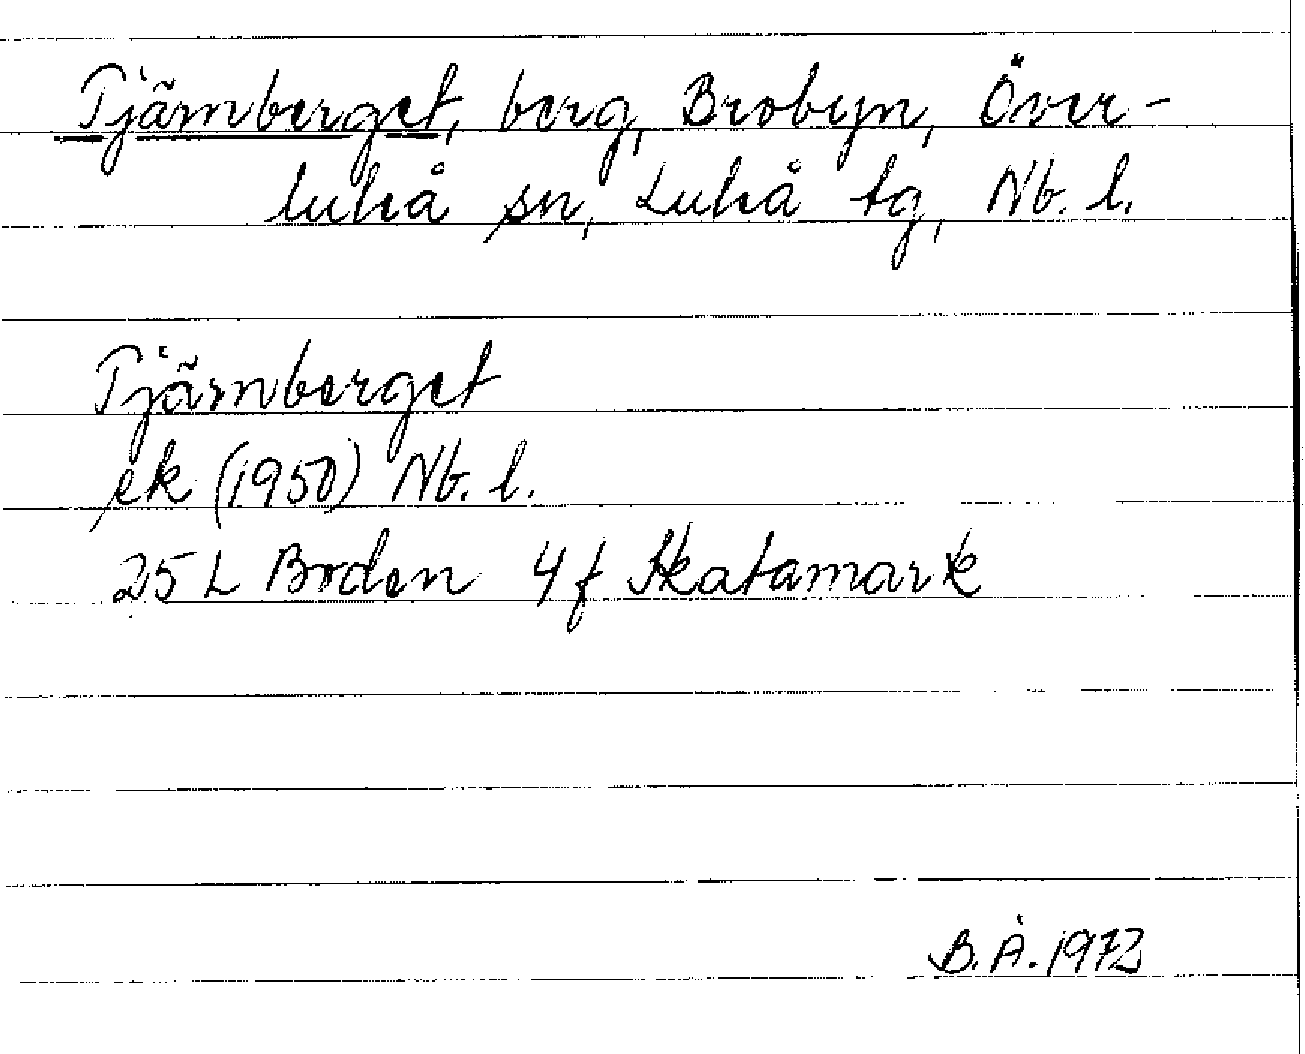 Tjärnberget, berg, Brobyn, Över-
luleå sn, Luleå tg, Nb. l.
Tjärnberget
ek (1950) Nb. l.
25 L Boden 4 f Skatamark
B. Å. 1972